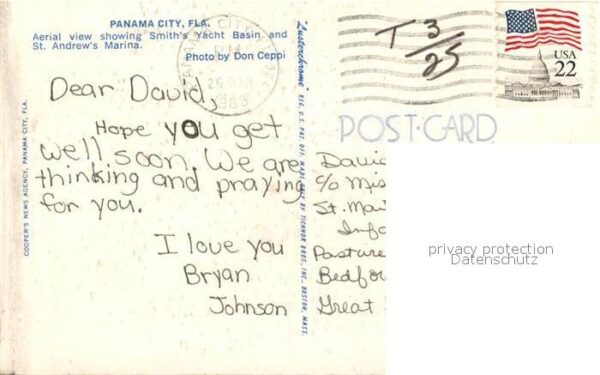 PANAMA CITY, FLA.
Aerial view showing Smith's Yacht Basin and
St. Andrew's Marina.
Photo by Don Ceppi
Dear David,
Hope you get
well soon. We are
thinking and praying
for you.
I love you
Bryan
Johnson
COOPER'S NEWS AGENCY, PANAMA CITY, FLA.
"Lusterchrome" REG. U.S. PAT. OFF. MADE ONLY BY TICHNOR BROS., INC., BOSTON, MASS.
PM
1986
T 3/25
USA
22
POST CARD
David
c/o Mis
St. Mar
Info
Pasture
Bedfor
Great
privacy protection
Datenschutz